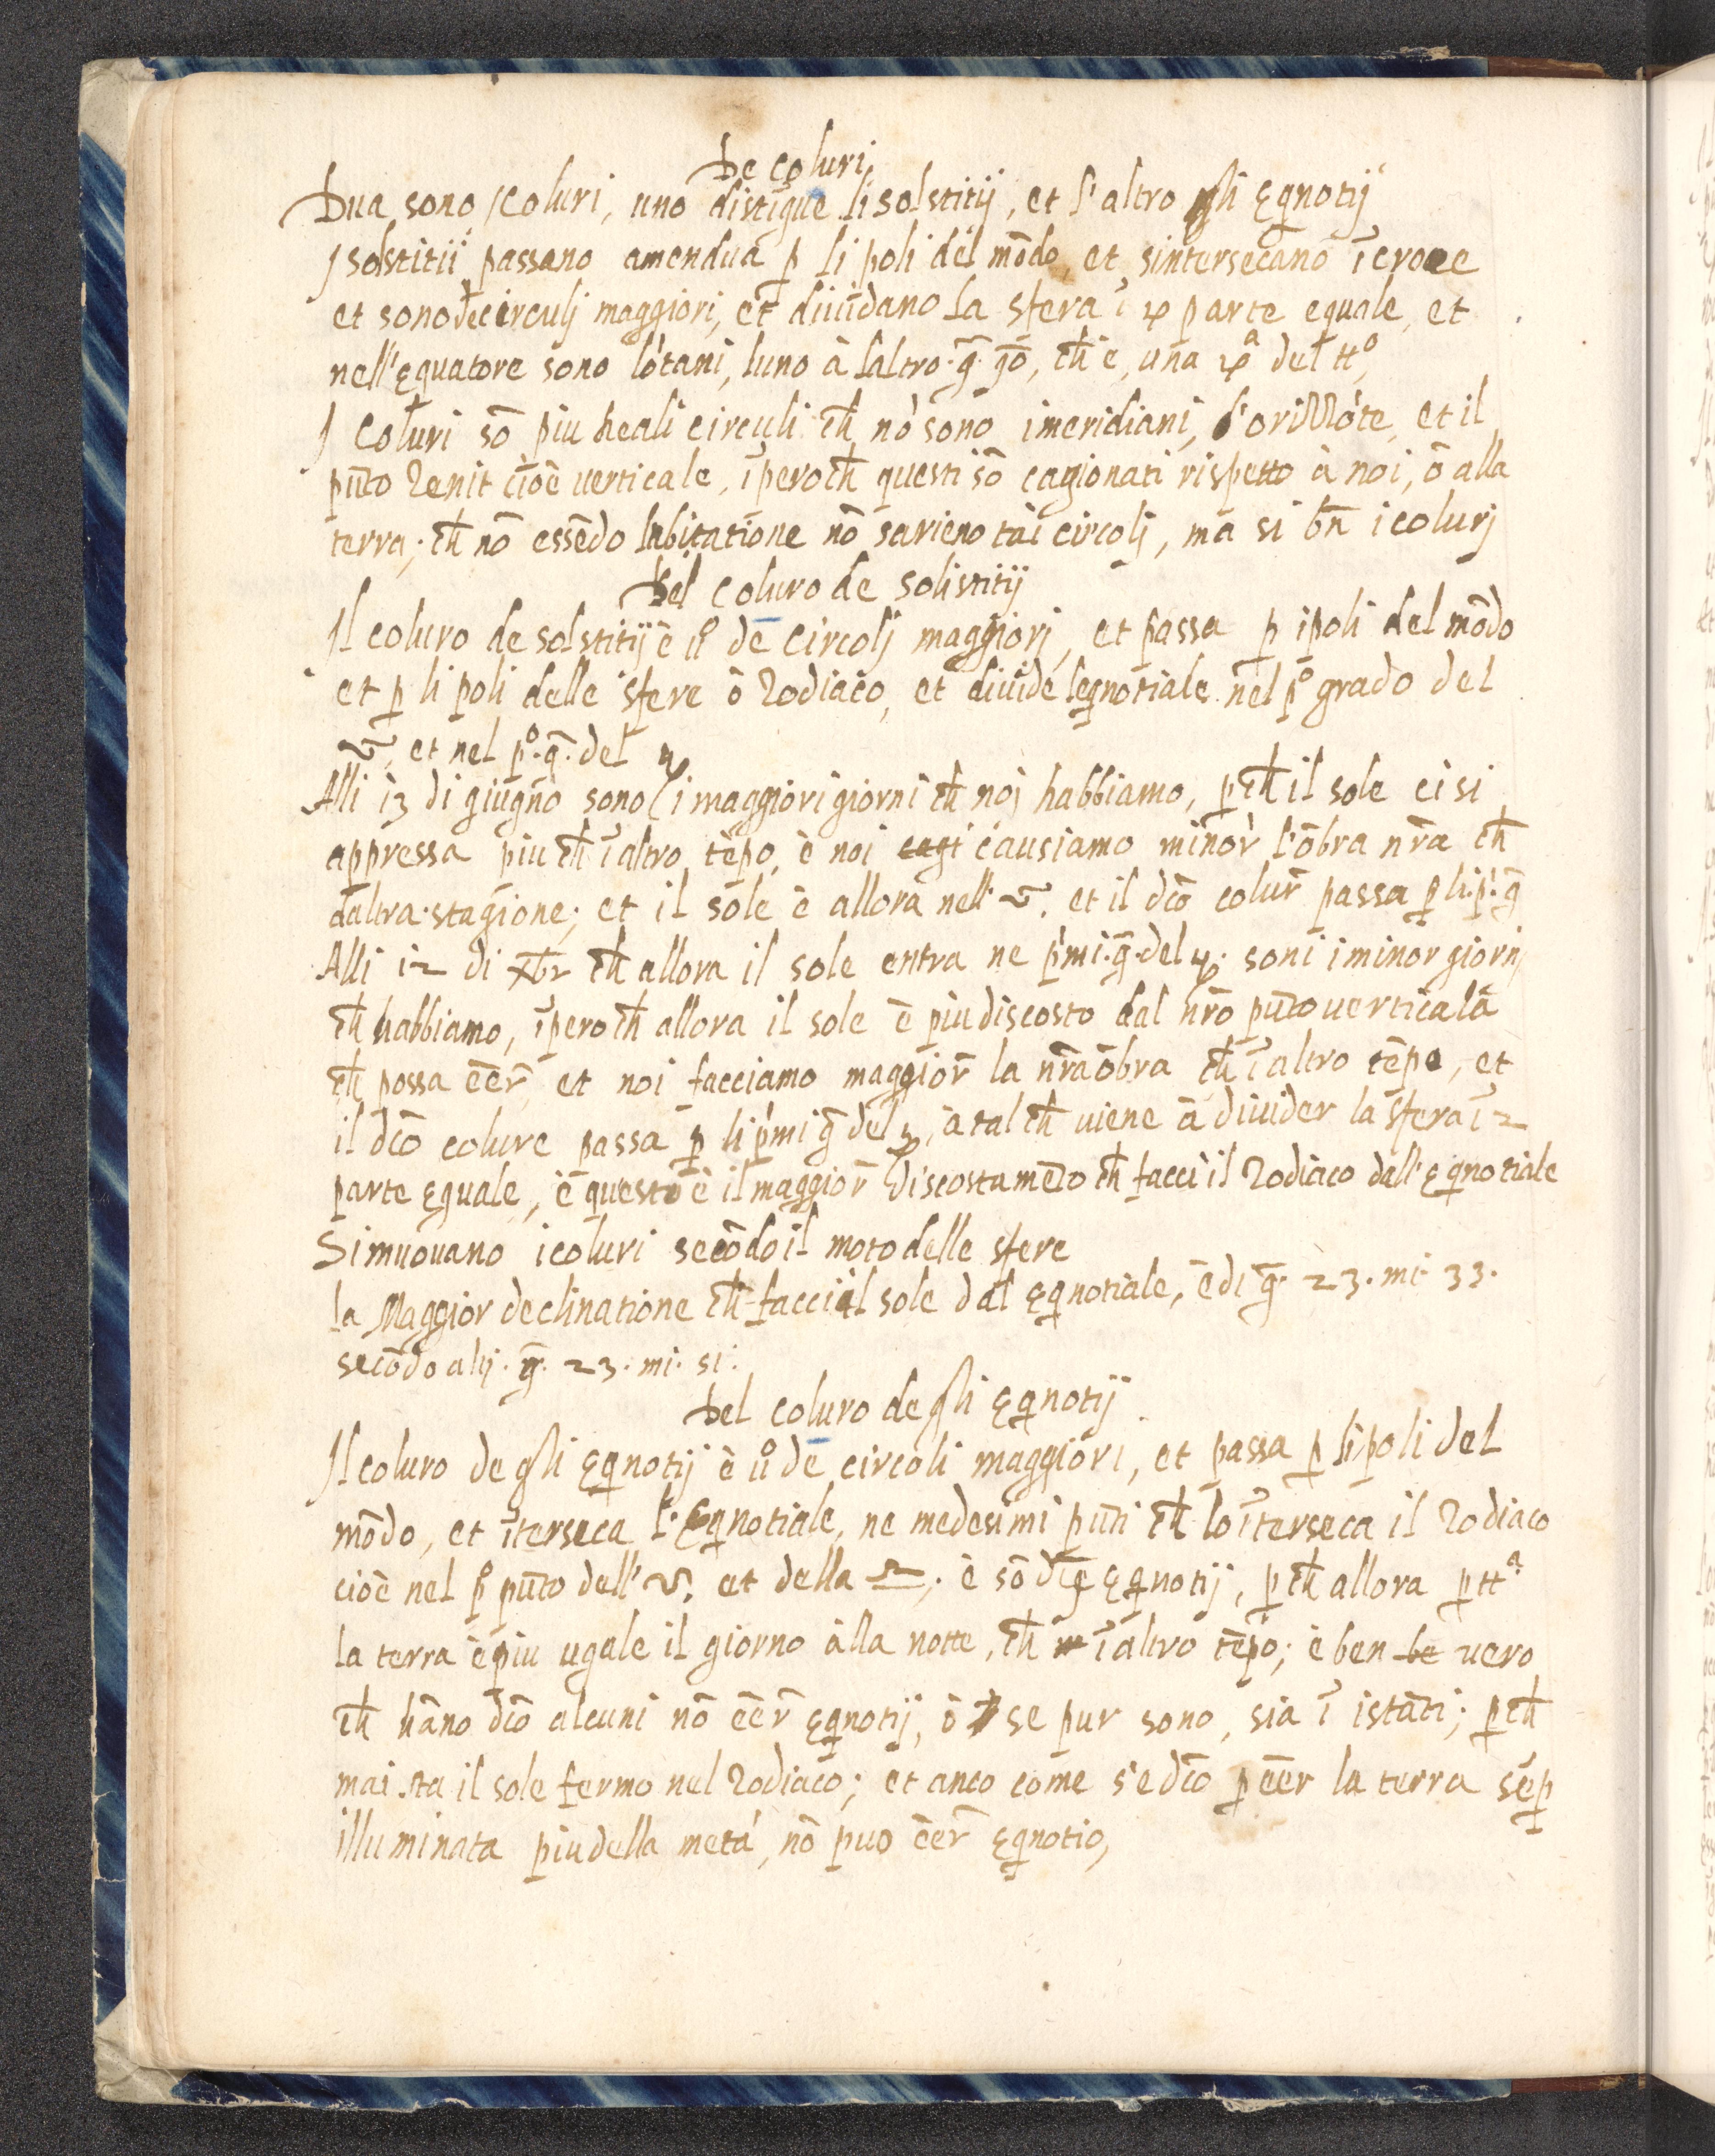 De coluri,
Dua sono i coluri, uno distīgue li solstitij, et l'altro gli eqnotij
i solstitii passano amendua p̱ li poli del mōdo, et sintersecano ī croce
et sono de circulj maggiori, et diuidano la sfera ī 4 parte equale, et
nell'equatore sono lōtani, luno à laltro .g̃. 90, ch̄ è, una 4ᵃ del ttº,
I Coluri sō piu reali circuli ch̄ nō sono i meridiani, l'orizzōte, et il
pūto Zenit cioè uerticale, īperoch̄ questi sō cagionati rispetto à noi, ò alla
terra; ch̄ nō essēdo labitatione nō sarieno tai circolj, ma si bn̄ i colurj
Del Coluro de Solistitij
Il coluro de solstitij è uº de Circolj maggiorj, et passa p̱ i poli del mōdo
et p̱ li poli delle sfere ò Zodiaco, et diuide leqnotiale nel pº grado del
♋, et nel pº.g̃. del ♑
Alli 13 di giugno sono i maggiori giorni ch̄ noj habbiamo, p̱ch̄ il sole ci si
appressa piu ch̄ ī altro tēpo, è noi cagi causiamo minor l'ōbra nr̄a ch̄
daltra stagione; et il sole è allora nell' ♋. et il dc̄o colur̄ passa p̱ li.p'.g̃
Alli 12 di xbr̄ ch̄ allora il sole entra ne p'mi.g̃.del ♑. soni i minor giornj
ch̄ habbiamo, īperoch̄ allora il sole è piu discosto dal nr̄o pūto uerticala
ch̄ possa eēr̄ et noi facciamo maggior̄ la nr̄a ōbra ch̄ ī altro tēpo, et
il dc̄o colure passa p̱ li p'mi g̃ del ♑, à tal ch̄ uiene à diuider la sfera ī 2
parte eguale, è questo è il maggior̄ discostamēto ch̄ facci il Zodiaco dall'eqnotiale
Si muouano i coluri secōdo il moto delle sfere
la Maggior declinatione ch̄ facci il sole dal eqnotiale, è di g̃. 23. mi. 33.
secōdo alij. g̃. 23. mi. 51.
Del coluro degli eqnotij
Il coluro degli eqnotij è uº de circoli maggiori, et passa p̱ li poli del
mōdo, et īterseca l'eqnotiale, ne medesimi pūti ch̄ lo īterseca il Zodiaco
cioè nel pº pūto dell' ♈. et della ♎. è sō dc̄i eqnotij, p̱ch̄ allora p̱ ttª
la terra è piu ugale il giorno alla notte, ch̄ ī altro tēpo; è ben be uero
ch̄ hāno dc̄o alcuni nō eēr̄ eqnotij, ò se pur sono, sia ī istāti; p̱ch̄
mai sta il sole fermo nel Zodiaco; et anco come s'è dc̄o p̱ eēr la terra sēp̱
illuminata piu della metà, nō puo eēr̄ eqnotio,